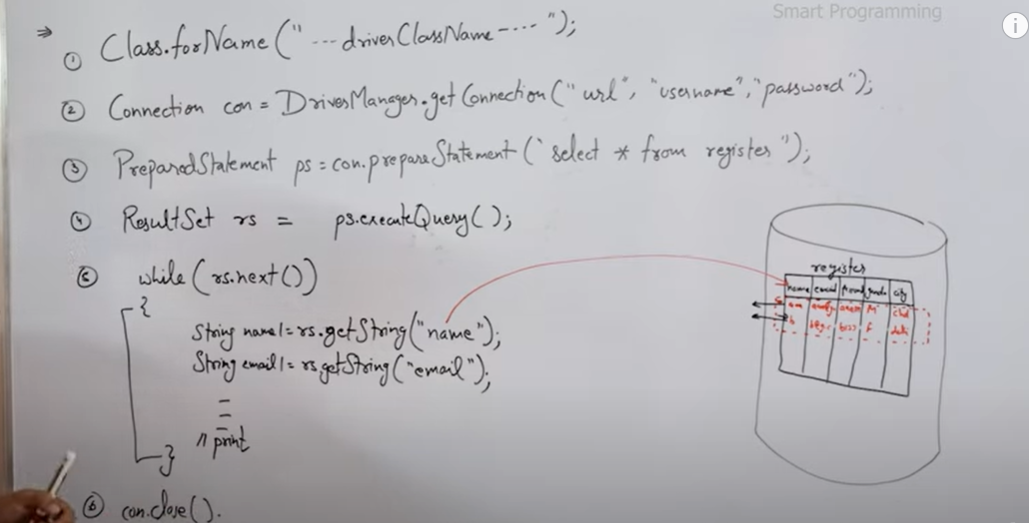 Smart Programming
⇒
① Class.forName("---driverClassName----");
② Connection con = DriverManager.getConnection("url", "username", "password");
③ PreparedStatement ps = con.prepareStatement("select * from register");
④ ResultSet rs = ps.executeQuery();
⑤ while(rs.next())
{
String name1 = rs.getString("name");
String email1 = rs.getString("email");
=
// print
}
⑥ con.close().
register
name email city